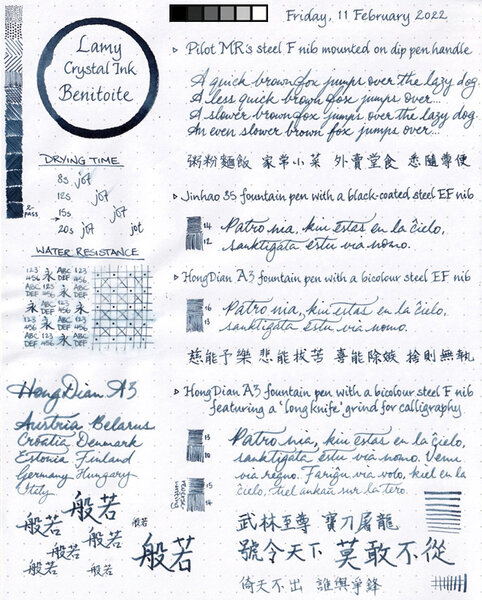 Friday, 11 February 2022
Lamy
Crystal Ink
Benitoite
▹ Pilot MR's steel F nib mounted on dip pen handle
A quick brown fox jumps over the lazy dog.
A less quick brown fox jumps over...
A slower brown fox jumps over the lazy dog.
An even slower brown fox jumps over...
粥粉麵飯 家常小菜 外賣堂食 悉隨尊便
DRYING TIME
8s jot
12s jot
15s jot
20s jot jot
2-PASS
▹ Jinhao 35 fountain pen with a black-coated steel EF nib
14
12
Patro nia, kiu estas en la ĉielo,
sanktigata estu via nomo.
WATER RESISTANCE
123 永 ABC 123
456 DEF 456
ABC 123 ABC
DEF 456 永 DEF
永 ABC 123 永
DEF 456
123 永 ABC 123
456 DEF 456
ABC 123 永 ABC
DEF 456 DEF
▹ HongDian A3 fountain pen with a bicolour steel EF nib
16
13
Patro nia, kiu estas en la ĉielo,
sanktigata estu via nomo.
慈能予樂 悲能拔苦 喜能除嫉 捨則無執
▹ HongDian A3 fountain pen with a bicolour steel F nib
featuring a 'long knife' grind for calligraphy
13
10
Patro nia, kiu estas en la ĉielo,
sanktigata estu via nomo. Venu
via regno. Fariĝu via volo, kiel en la
ĉielo, tiel ankaŭ sur la tero.
15
14
HongDian A3
Austria Belarus
Croatia Denmark
Estonia Finland
Germany Hungary
Italy
般若 般若 般若
般若 般若
般若 般若 般若
武林至尊 寶刀屠龍
號令天下 莫敢不從
倚天不出 誰與爭鋒